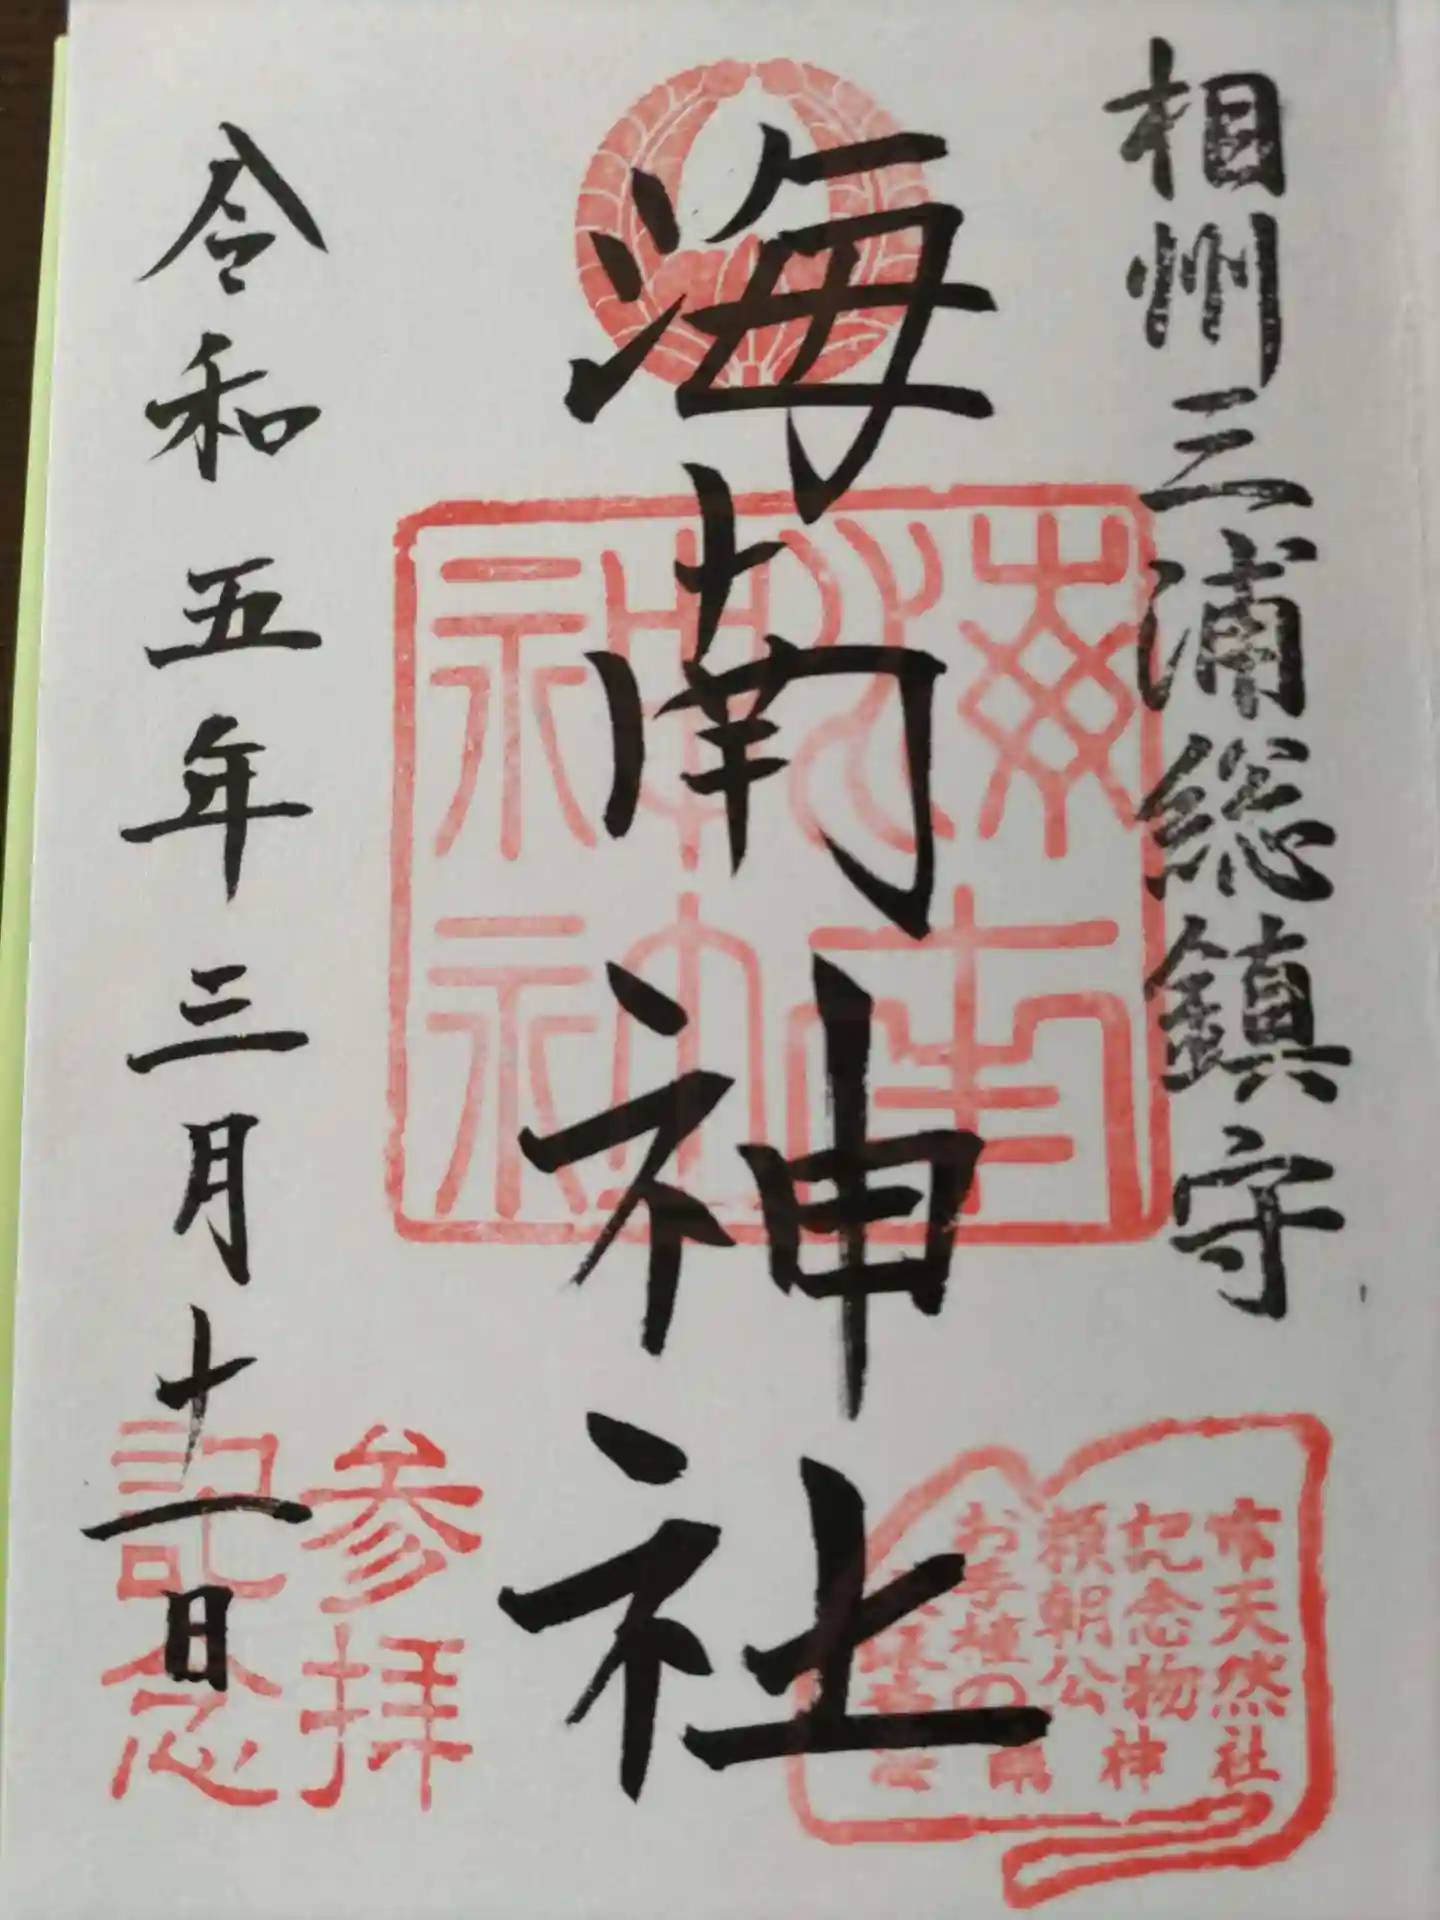 相州三浦総鎮守
海南神社
海南
神社
市天然
記念物
頼朝公
お手植の
社
神
参拝
記念
令和五年三月十一日